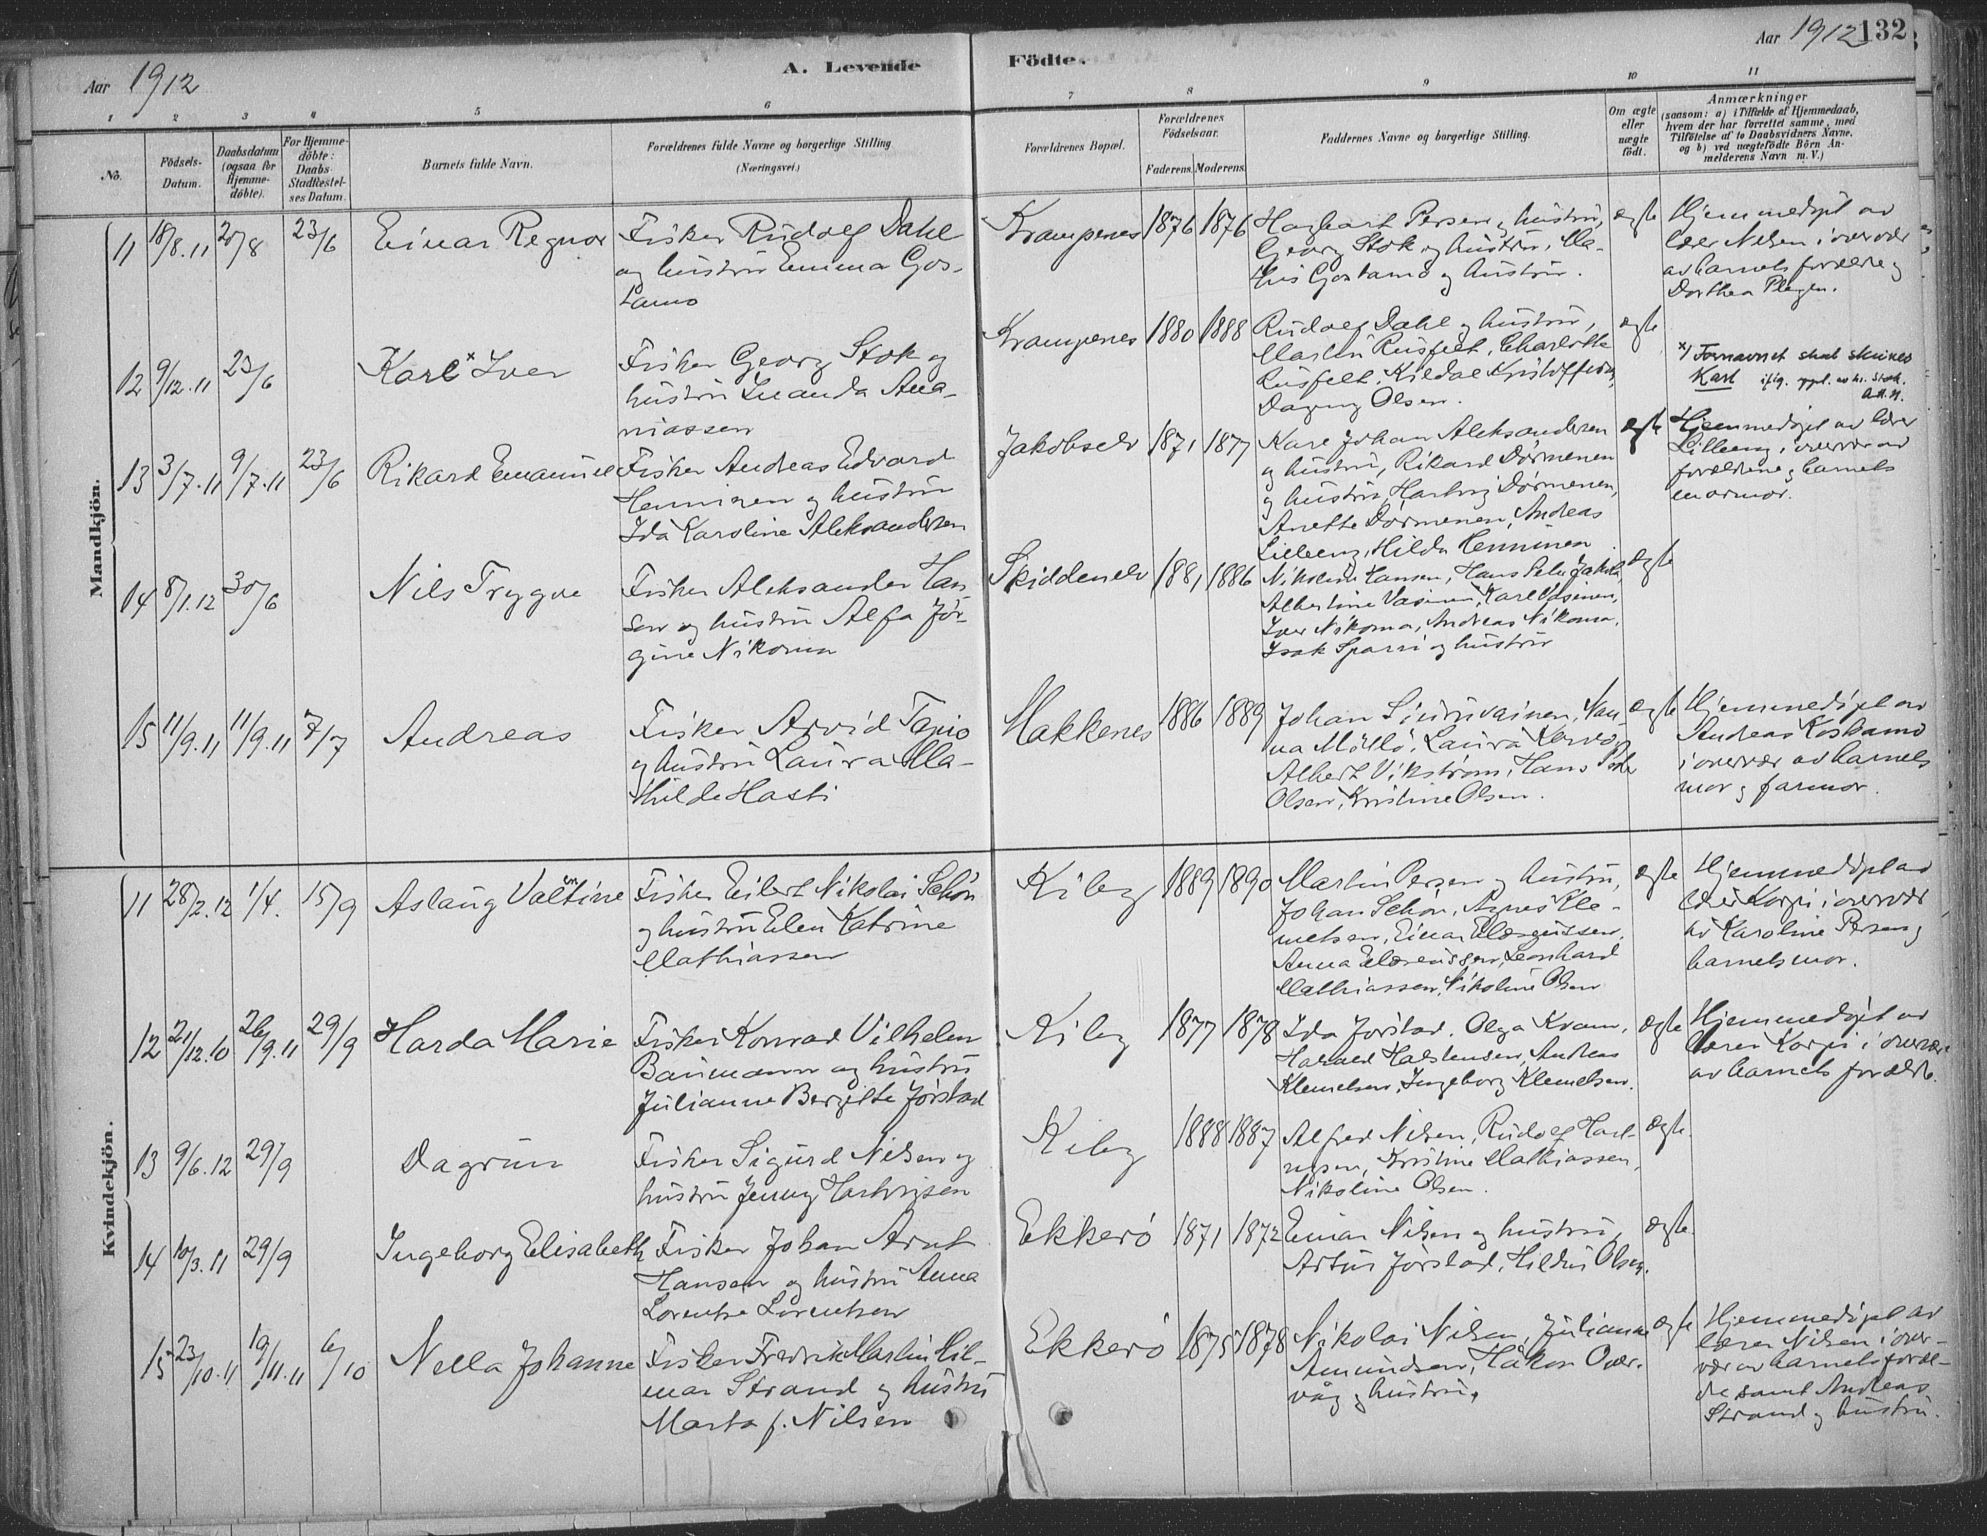 Aar 1912
A. Levende
Födte.
Aar 1912
132
1
2
3
4
5
6
7
8
9
10
11
No.
Födsels-
Datum.
Daabsdatum
(ogsaa for
Hjemme-
döbte).
For Hjemme-
döbte:
Daabs-
Stadfæstel-
ses Datum.
Barnets fulde Navn.
Forældrenes fulde Navne og borgerlige Stilling
(Næringsvei.)
Forældrenes Bopæl.
Forældrenes
Födselsaar.
Faderens. Moderens.
Faddernes Navne og borgerlige Stilling.
Om ægte
eller
uægte
födt.
Anmærkninger
(saasom: a) i Tilfælde af Hjemmedaab,
hvem der har forrettet samme, med
Tilföielse af to Daabsvidners Navne,
og b) ved uægtefödte Börn An-
melderens Navn m. V.)
Mandkjön.
11 18/8.11 20/8 23/6
Einar Regnor
Fisker Rudolf Dahl
og hustru Emma Gos-
tamo
Krampenes 1876 1876
Hagbart Persen og hustru,
Georg Stok og hustru, Ma-
this Gostamo og hustru.
ægte
Hjemmedøpt av
lærer Nilsen i overvær
av barnets forældre og
Dorthea Plagen.
12 9/12.11 23/6
Karl x Iver
Fisker Georg Stok og
hustru Inanda Ana-
niassen
Krampenes 1880 1888
Rudolf Dahl og hustru,
Martin Rusfelt, Charlotte
Rusfelt, Kildal Kristoffersen,
Dagny Olsen.
ægte
x/ Fornavnet skal skrives
Karl
13 3/7.11 9/7.11 23/6
Rikard Emanuel
Fisker Andreas Edvard
Henninen og hustru
Ida Karoline Aleksandersen
Jakobselv 1871 1877
Karl Johan Aleksandersen
og hustru, Rikard Dørmenen
og hustru, Hartvig Dørmenen,
Anette Dørmenen, Andreas
Lilleeng, Hilda Henninen
ægte
Hjemmedøpt av lærer
Lilleeng i overvær av
forældrene og barnets
mormor.
14 8/1.12 30/6
Nils Trygve
Fisker Aleksander Han-
sen og hustru Alfa Jør-
gine Nikoma
Skiddenelv 1881 1886
Nikoline Hansen, Hans Peter
Albertine Karl
Iver Nikoma, Andreas Nikoma,
Isak Sparri og hustru
ægte
15 11/9.11 11/9.11 7/7
Andreas
Fisker Arvid Tapio
og hustru Laura Ma-
thilde Hasti
Makkenes 1886 1889
Johan Nan-
na Laura
Albert Vikstrøm, Hans Peder
Olsen, Kristine Olsen.
ægte
Hjemmedøpt av
Andreas Koskamo
i overvær av barnets
mor og farmor.
Kvindekjön.
11 28/2.12 1/4. 15/9
Aslaug Valentine
Fisker Eilert Nikolai Schøn
og hustru Elen Katrine
Mathiassen
Kiberg 1889 1890
Martin Persen og hustru,
Johan Schøn, Agnes Kle-
metsen, Einar Elærensen,
Anna Elærensen, Leonhard
Mathiassen, Nikoline Olsen
ægte
Hjemmedøpt av
lærer Korpi i overvær
av Karoline Persen og
barnets mor.
12 21/12.10 26/9.11 29/9
Harda Marie
Fisker Konrad Vilhelm
Baumann og hustru
Julianne Bergitte Jørstad
Kiberg 1877 1878
Ida Jørstad, Olga Kvam,
Harald Halstensen, Andreas
Klemetsen, Ingeborg Klemetsen.
ægte
Hjemmedøpt av
lærer Korpi i overvær
av barnets forældre.
13 9/6.12 29/9
Dagrun
Fisker Sigurd Nilsen og
hustru Jenny Hartvigsen
Kiberg 1888 1887
Alfred Nilsen, Rudolf Hart-
vigsen, Kristine Mathiassen,
Nikoline Olsen.
ægte.
14 10/3.11 29/9
Ingeborg Elisabeth
Fisker Johan Arnt
Hansen og hustru Anna
Lorentse Lorentsen
Ekkerø 1871 1872
Einar Nilsen og hustru,
Artur Jørstad, Hildur Olsen.
ægte.
15 23/10.11 19/11.11 6/10
Nella Johanne
Fisker Fredrik Martin Hil-
mar Strand og hustru
Marta f. Nilsen
Ekkerø 1875 1878
Nikolai Nilsen, Julianne
Amundsen, Håkon Over-
våg og hustru,
ægte
Hjemmedøpt av
lærer Nilsen i over-
vær av barnets foræl-
dre samt Andreas
Strand og hustru.